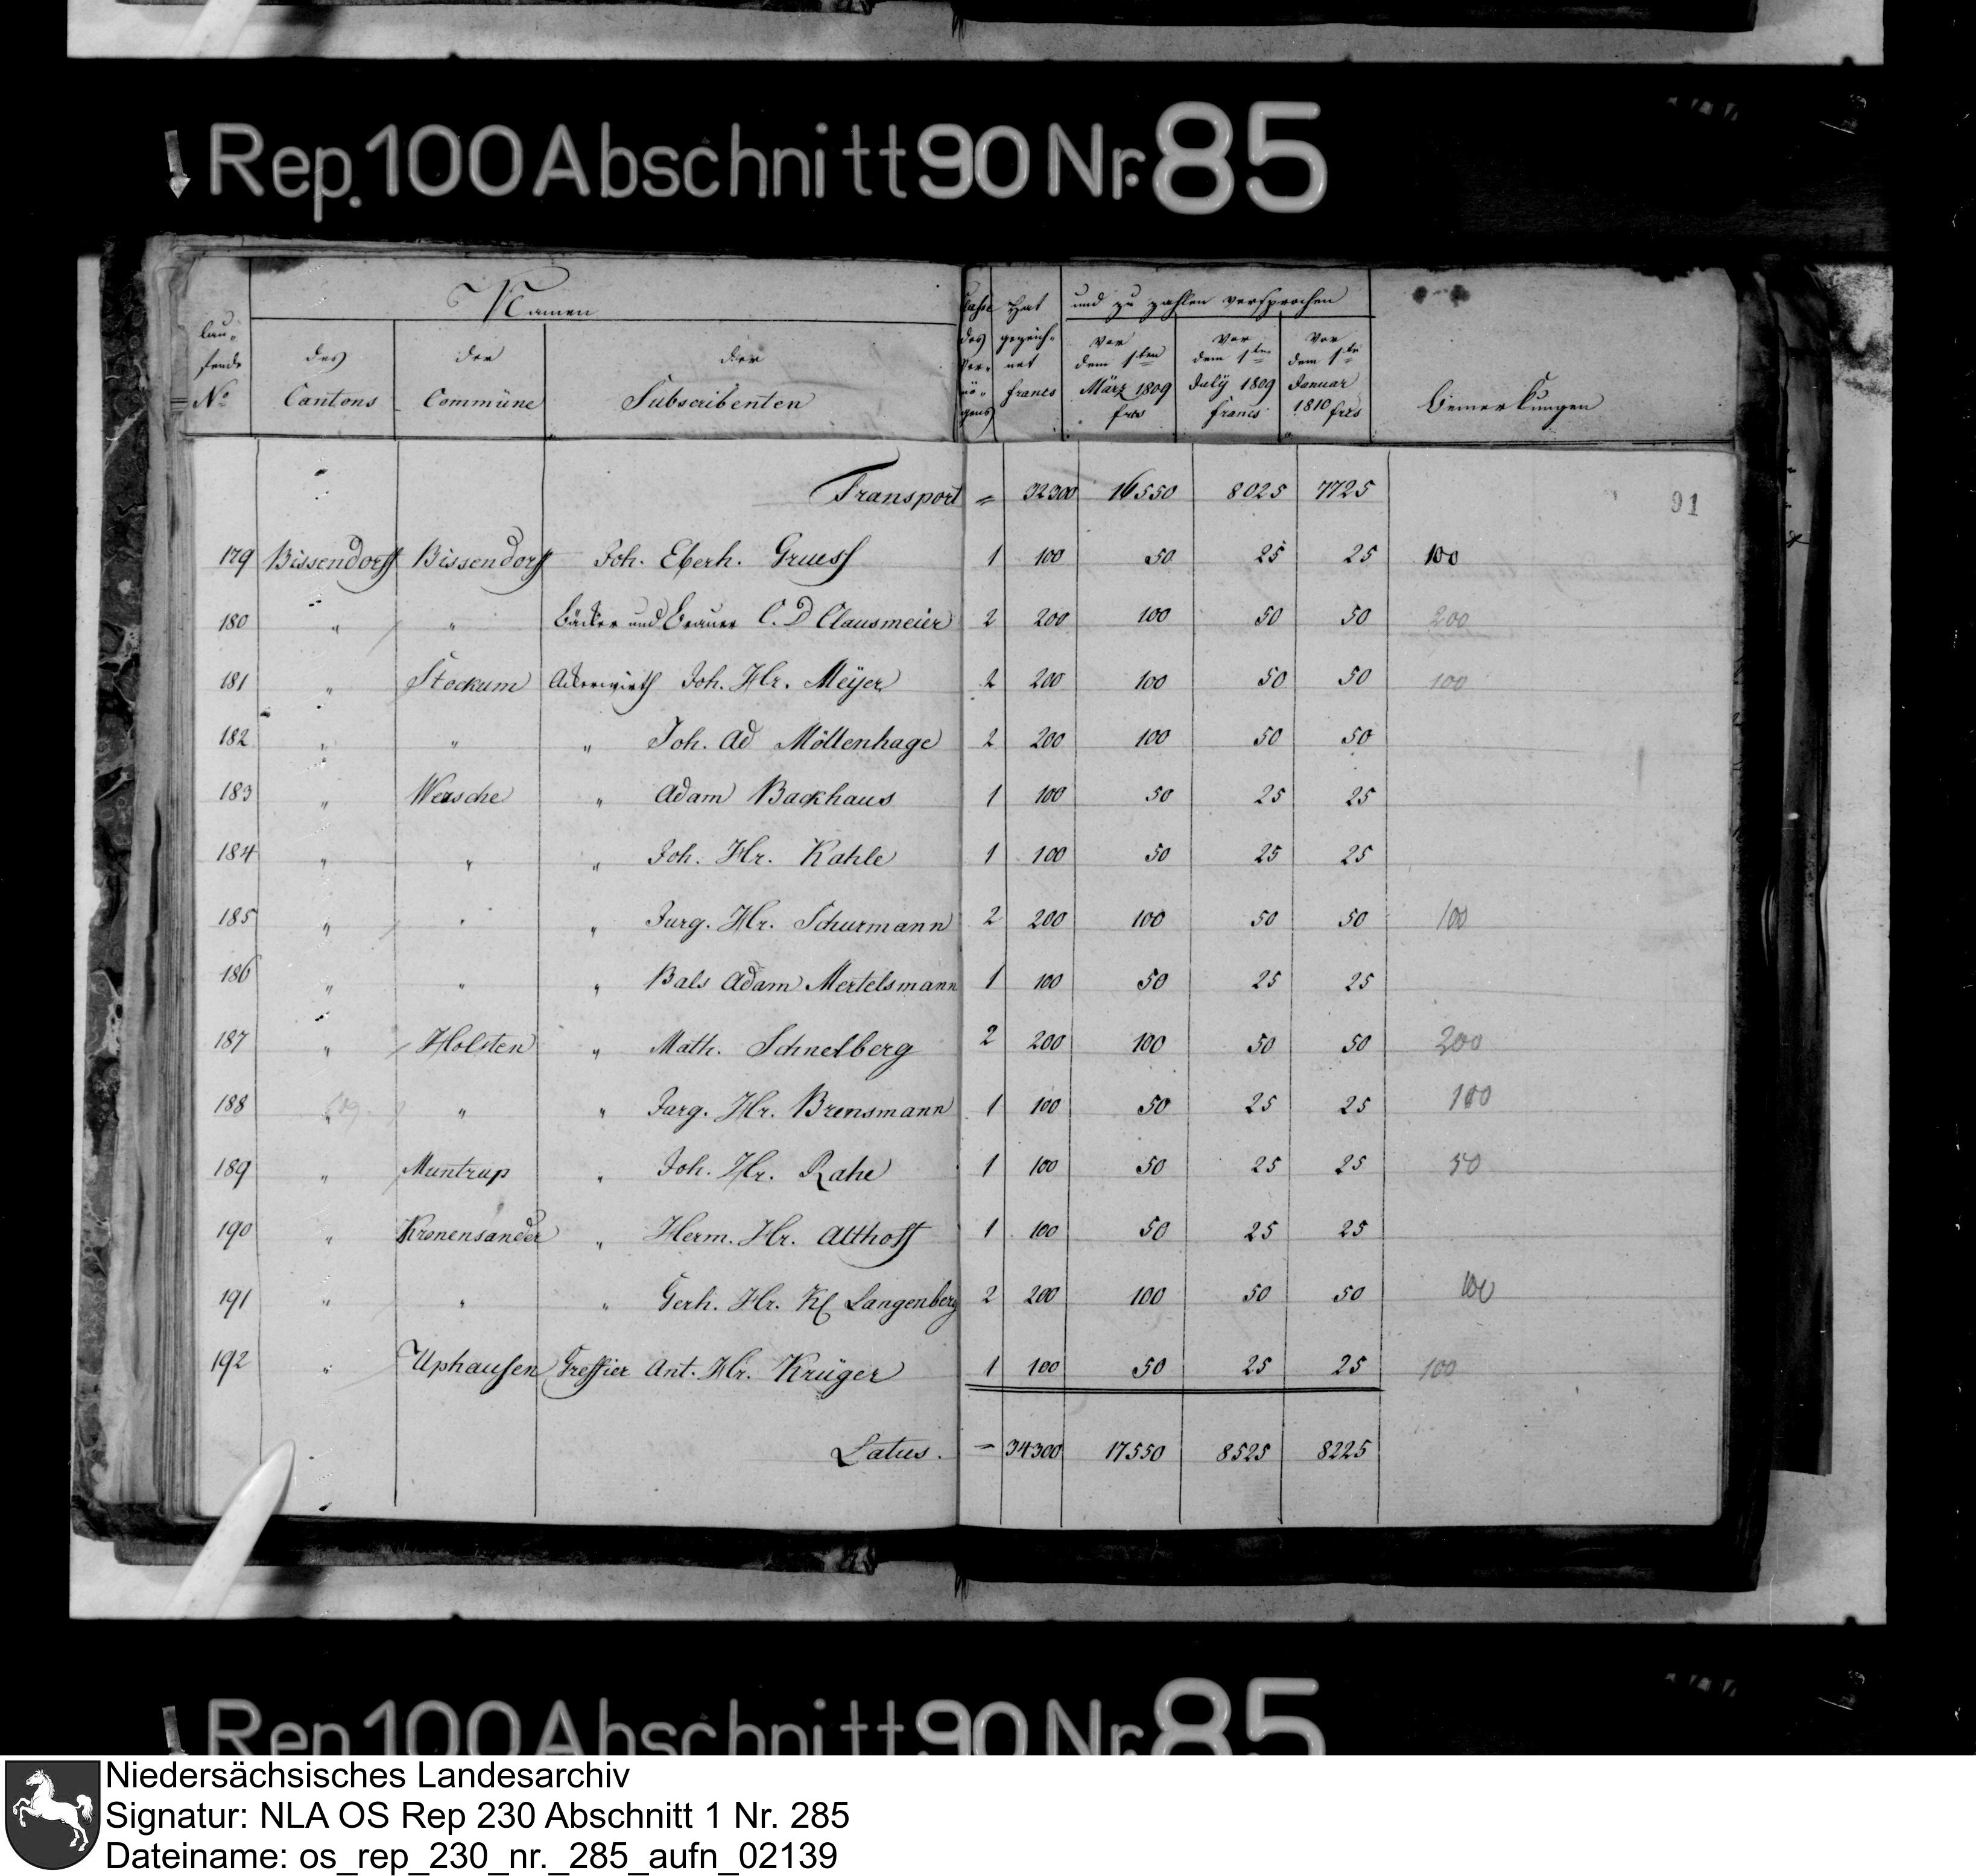 Rep. 100 Abschnitt 90 Nr. 85
Namen
lau-
fende
No
des
Cantons
der
Commüne
der
Subscribenten
Classe
des
Ver-
mö-
gens
Hat
gezeich-
net
francs
und zu zahlen versprochen
vor
dem 1ten
März 1809
frcs
vor
dem 1ten
July 1809
francs
vor
dem 1te
Januar
1810 frcs
Bemerkungen
91
Transport = 32300 16550 8025 7725
179 Bissendorff Bissendorff Joh. Eberh. Gruess 1 100 50 25 25 100
180 " " Bäcker und Brauer C. D Clausmeier 2 200 100 50 50 200
181 " Stockum Ackerwirth Joh. Hr. Meÿer 2 200 100 50 50 100
182 " " " Joh. Ad Möllenhage 2 200 100 50 50
183 " Wersche " Adam Backhaus 1 100 50 25 25
184 " " " Joh. Hr. Kahle 1 100 50 25 25
185 " " " Jurg. Hr. Schurmann 2 200 100 50 50 100
186 " " " Bals Adam Mertelsmann 1 100 50 25 25
187 " Holsten " Math. Schnelberg 2 200 100 50 50 200
188 " " " Jurg. Hr. Brensmann 1 100 50 25 25 100
189 " Muntrup " Joh. Hr. Rahe 1 100 50 25 25 50
190 " Kronensander " Herm. Hr. Althoff 1 100 50 25 25
191 " " " Gerh. Hr. Kl Langenberg 2 200 100 50 50 100
192 " Uphausen Greffier Ant. Hr. Krüger 1 100 50 25 25 100
Latus. = 34300 17550 8525 8225
Rep. 100 Abschnitt 90 Nr. 85
Niedersächsisches Landesarchiv
Signatur: NLA OS Rep 230 Abschnitt 1 Nr. 285
Dateiname: os_rep_230_nr._285_aufn_02139